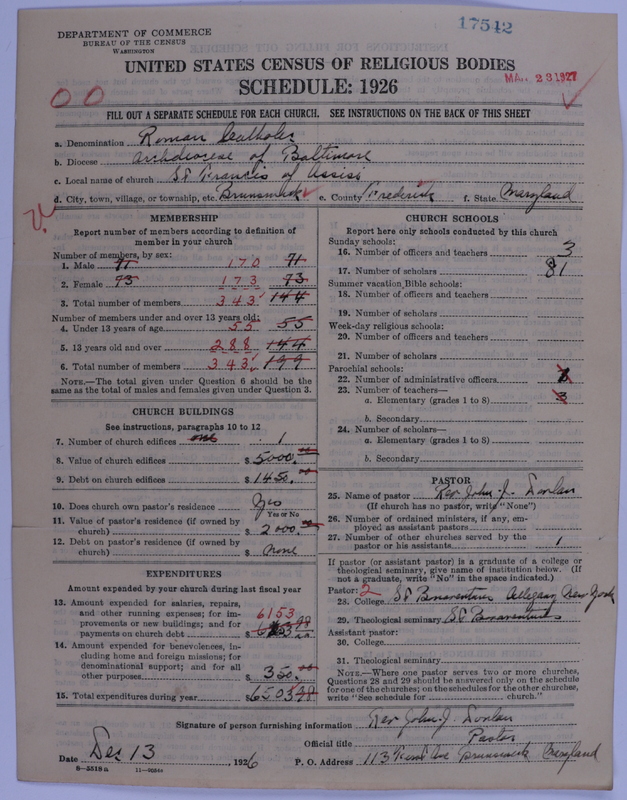 17542
DEPARTMENT OF COMMERCE
BUREAU OF THE CENSUS
WASHINGTON
UNITED STATES CENSUS OF RELIGIOUS BODIES
MAR 23 1927
SCHEDULE: 1926
00
FILL OUT A SEPARATE SCHEDULE FOR EACH CHURCH. SEE INSTRUCTIONS ON THE BACK OF THIS SHEET
a. Denomination Roman Catholic
b. Diocese Archdiocese of Baltimore
c. Local name of church St Francis of Assisi
d. City, town, village, or township, etc. Brunswick e. County Frederick f. State Maryland
MEMBERSHIP
Report number of members according to definition of
member in your church
Number of members, by sex:
1. Male 71 170 71
2. Female 73 173 73
3. Total number of members 343 144
Number of members under and over 13 years old:
4. Under 13 years of age 55 55
5. 13 years old and over 288 144
6. Total number of members 343 199
NOTE.—The total given under Question 6 should be
same as the total of males and females given under Question 3.
CHURCH BUILDINGS
See instructions, paragraphs 10 to 12
7. Number of church edifices one 1
8. Value of church edifices $ 5000.00
9. Debt on church edifices $ 1450.00
10. Does church own pastor's residence Yes
Yes or No
11. Value of pastor's residence (if owned by
church) $ 2000.00
12. Debt on pastor's residence (if owned by
church) $ None
EXPENDITURES
Amount expended by your church during last fiscal year
13. Amount expended for salaries, repairs,
and other running expenses; for im-
provements or new buildings; and for
payments on church debt $ 6153
14. Amount expended for benevolences, in-
cluding home and foreign missions; for
denominational support; and for all
other purposes $ 350.00
15. Total expenditures during year $ 6503.98
CHURCH SCHOOLS
Report here only schools conducted by this church
Sunday schools:
16. Number of officers and teachers 3
17. Number of scholars 81
Summer vacation Bible schools:
18. Number of officers and teachers
19. Number of scholars
Week-day religious schools:
20. Number of officers and teachers
21. Number of scholars
Parochial schools:
22. Number of administrative officers
23. Number of teachers—
a. Elementary (grades 1 to 8) 3
b. Secondary
24. Number of scholars—
a. Elementary (grades 1 to 8)
b. Secondary
PASTOR
25. Name of pastor Rev John J. Donlan
(If church has no pastor, write "None")
26. Number of ordained ministers, if any, em-
ployed as assistant pastors
27. Number of other churches served by the
pastor or his assistants 1
If pastor (or assistant pastor) is a graduate of a college or
theological seminary, give name of institution below. (If
not a graduate, write "No" in the space indicated.)
Pastor: 2
28. College St Bonaventures Allegany New York
29. Theological seminary St Bonaventures
Assistant pastor:
30. College
31. Theological seminary
NOTE.—Where one pastor serves two or more churches,
Questions 28 and 29 should be answered only on the schedule
for one of the churches; on the schedules for the other churches,
write "See schedule for church."
Signature of person furnishing information Rev John J. Donlan
Official title Pastor
Date Dec 13, 1926 P. O. Address 113 Ave Brunswick Maryland
8—5518a